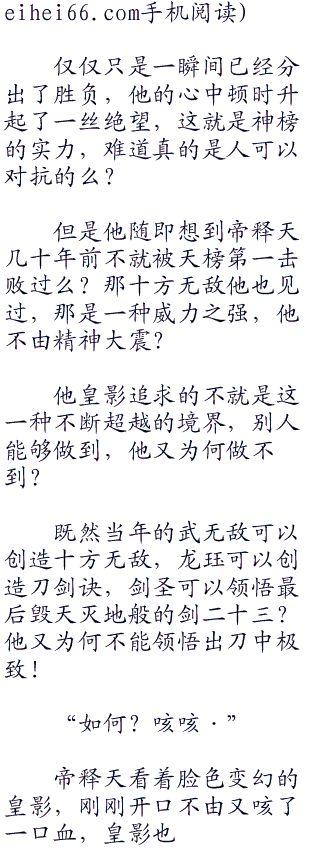 eihei66.com手机阅读)
仅仅只是一瞬间已经分
出了胜负，他的心中顿时升
起了一丝绝望，这就是神榜
的实力，难道真的是人可以
对抗的么？
但是他随即想到帝释天
几十年前不就被天榜第一击
败过么？那十方无敌他也见
过，那是一种威力之强，他
不由精神大震？
他皇影追求的不就是这
一种不断超越的境界，别人
能够做到，他又为何做不
到？
既然当年的武无敌可以
创造十方无敌，龙珏可以创
造刀剑诀，剑圣可以领悟最
后毁天灭地般的剑二十三？
他又为何不能领悟出刀中极
致！
“如何？咳咳·”
帝释天看着脸色变幻的
皇影，刚刚开口不由又咳了
一口血，皇影也